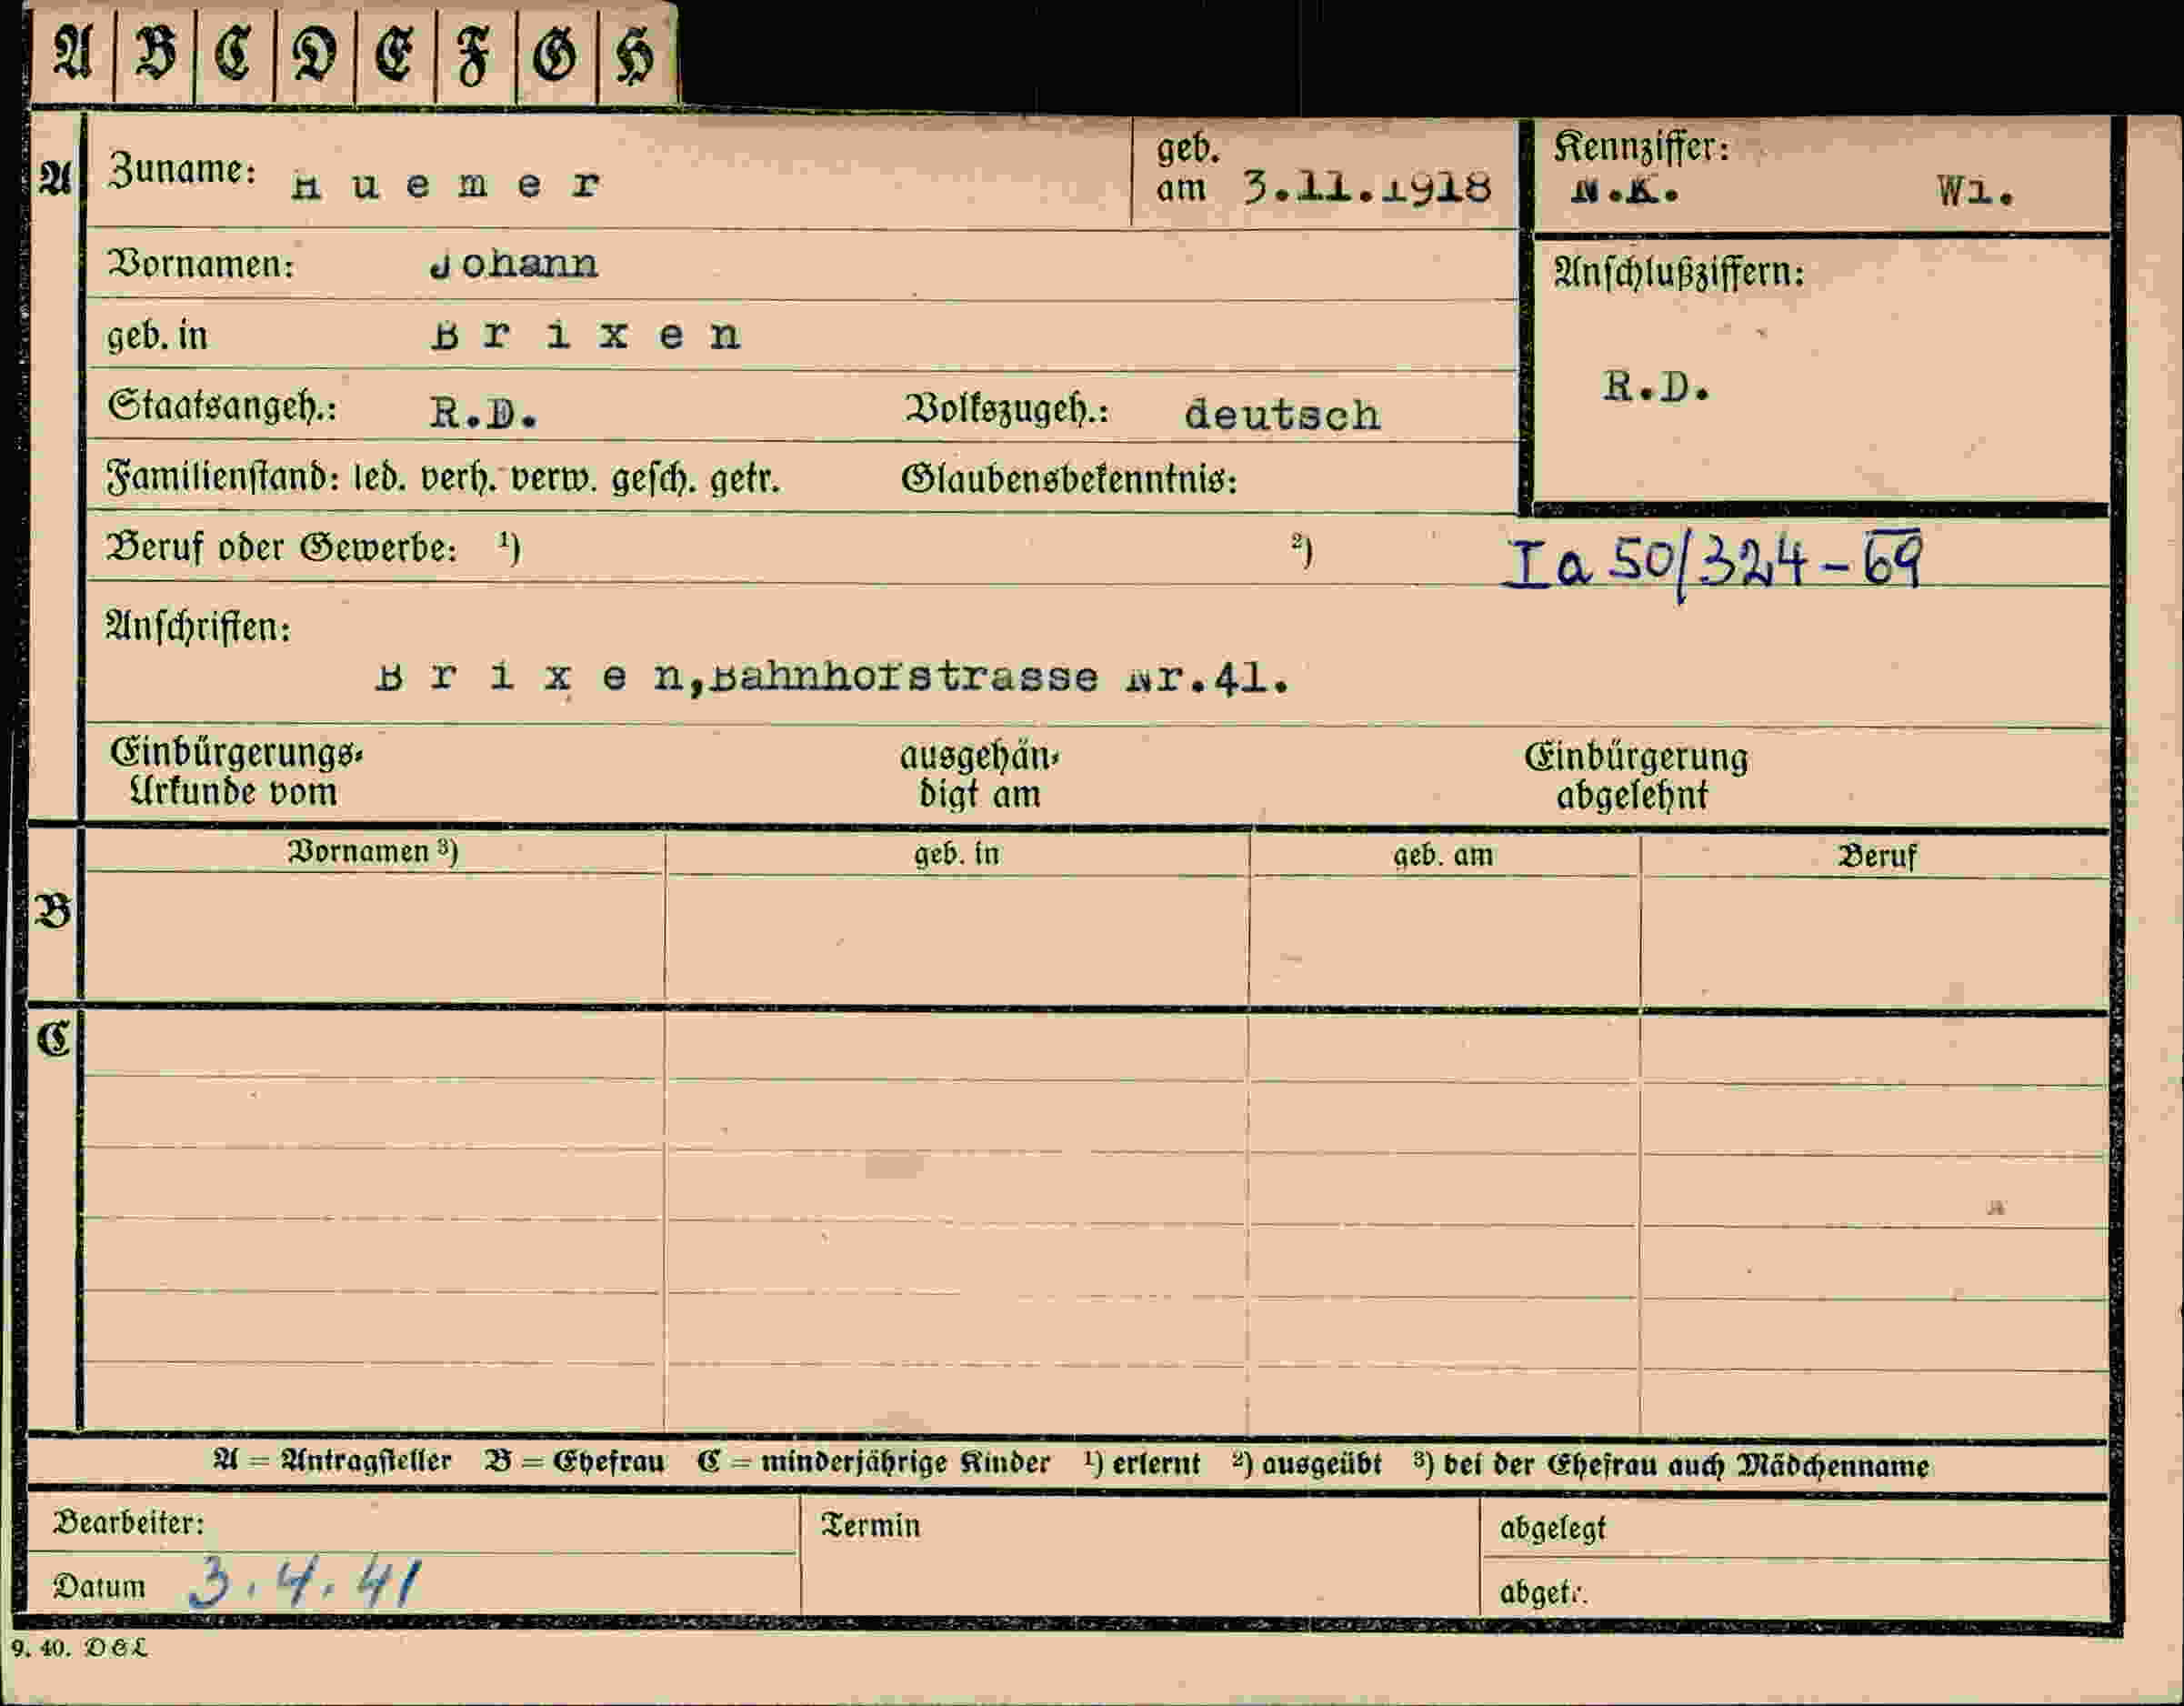 A B C D E F G H
A Zuname: Huemer geb. am 3.11.1918 Kennziffer: N.K. Wi.
Vornamen: Johann Anschlußziffern:
geb. in Brixen
R.D.
Staatsangeh.: R.D. Volkszugeh.: deutsch
Familienstand: led. verh. verw. gesch. getr. Glaubensbekenntnis:
Beruf oder Gewerbe: ¹) ²) Ia 50/324-69
Anschriften:
Brixen,Bahnhofstrasse Nr.41.
Einbürgerungs- ausgehän- Einbürgerung
Urkunde vom digt am abgelehnt
Vornamen ³) geb. in geb. am Beruf
B
C
A = Antragsteller B = Ehefrau C = minderjährige Kinder ¹) erlernt ²) ausgeübt ³) bei der Ehefrau auch Mädchenname
Bearbeiter: Termin abgelegt
Datum 3.4.41 abgetr.
9. 40. DGL